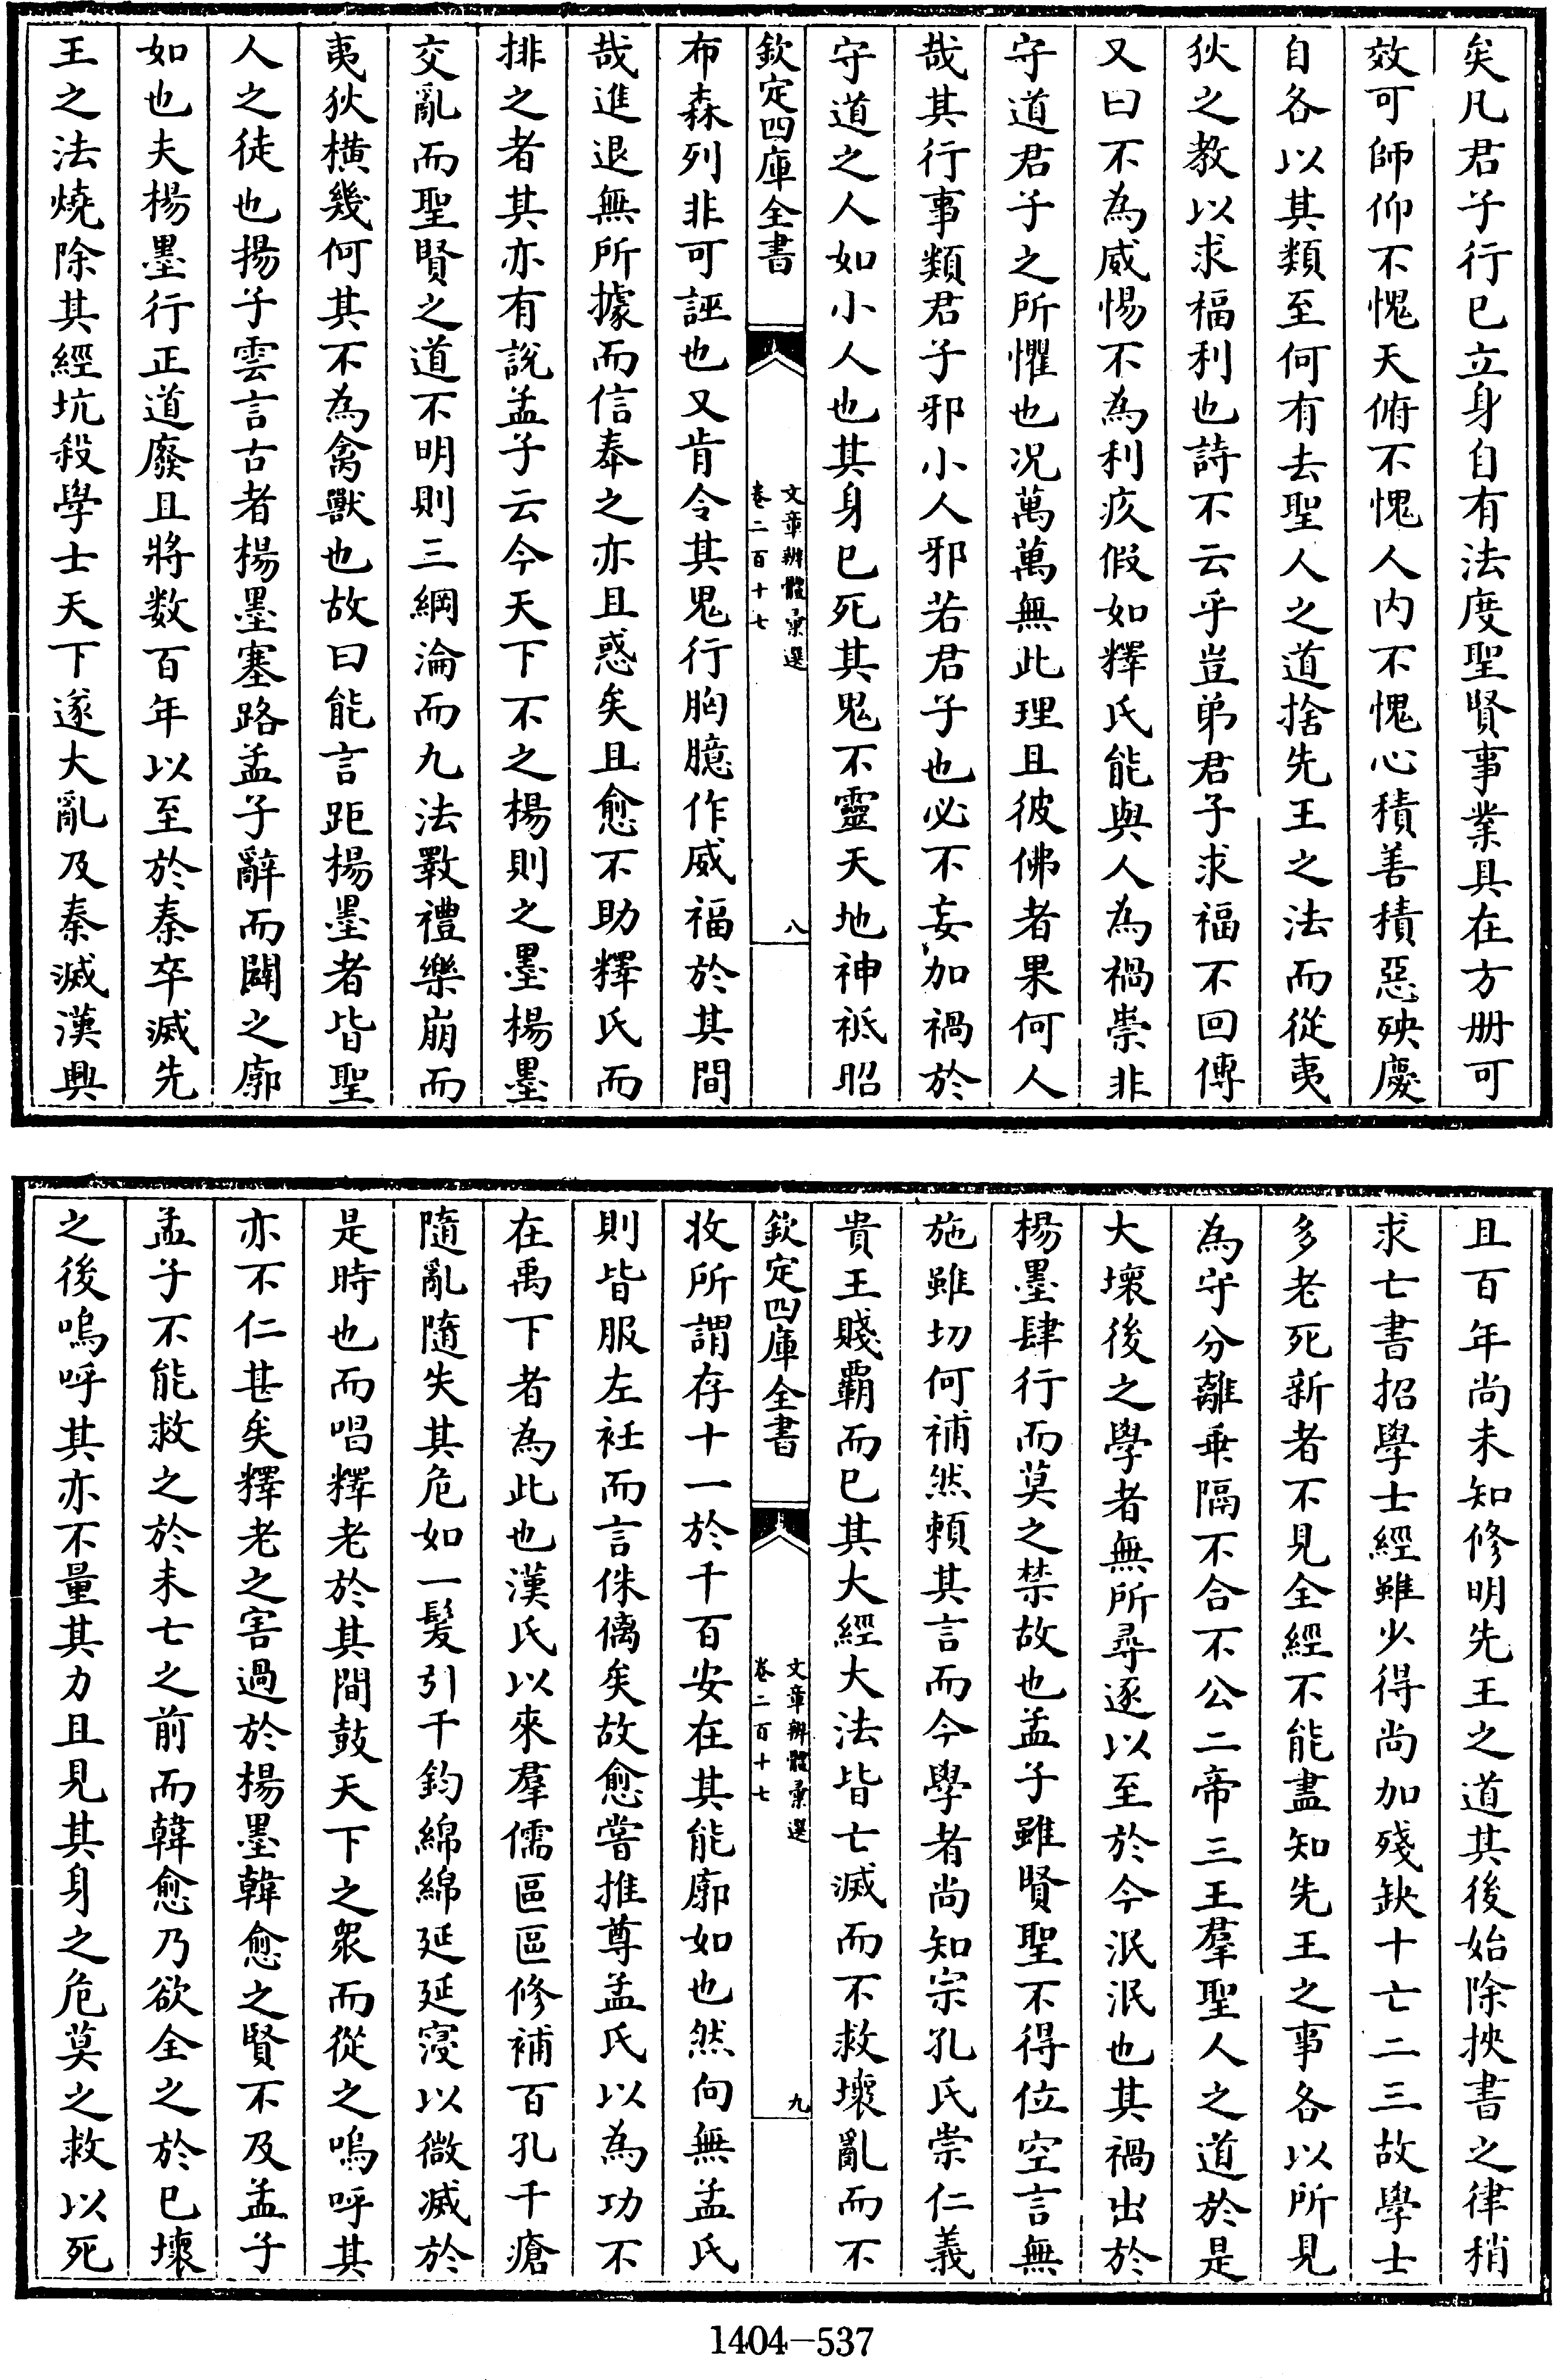 矣凡君子行已立身自有法度聖賢事業具在方册可
效可師仰不愧天俯不愧人内不愧心積善積惡殃慶
自各以其類至何有去聖人之道捨先王之法而從夷
狄之教以求福利也詩不云乎豈弟君子求福不回傳
又曰不為威惕不為利疚假如釋氏能與人為禍祟非
守道君子之所懼也况萬萬無此理且彼佛者果何人
哉其行事類君子邪小人邪若君子也必不妄加禍於
守道之人如小人也其身已死其鬼不靈天地神祗昭
欽定四庫全書
文章辨體彙選
卷二百十七
八
布森列非可誣也又肯令其鬼行胸臆作威福於其間
哉進退無所據而信奉之亦且惑矣且愈不助釋氏而
排之者其亦有說孟子云今天下不之楊則之墨楊墨
交亂而聖賢之道不明則三綱淪而九法斁禮樂崩而
夷狄橫幾何其不為禽獸也故曰能言距楊墨者皆聖
人之徒也揚子雲言古者楊墨塞路孟子辭而闢之廓
如也夫楊墨行正道廢且將数百年以至於秦卒滅先
王之法燒除其經坑殺學士天下遂大亂及秦滅漢興
且百年尚未知修明先王之道其後始除挾書之律稍
求亡書招學士經雖少得尚加殘缺十亡二三故學士
多老死新者不見全經不能盡知先王之事各以所見
為守分離乖隔不合不公二帝三王羣聖人之道於是
大壞後之學者無所尋逐以至於今泯泯也其禍出於
楊墨肆行而莫之禁故也孟子雖賢聖不得位空言無
施雖切何補然賴其言而今學者尚知宗孔氏崇仁義
貴王賤霸而已其大經大法皆亡滅而不救壞亂而不
欽定四庫全書
文章辨體彙選
卷二百十七
九
收所謂存十一於千百安在其能廓如也然向無孟氏
則皆服左衽而言侏㒧矣故愈嘗推尊孟氏以為功不
在禹下者為此也漢氏以來羣儒區區修補百孔千瘡
隨亂隨失其危如一髮引千鈞綿綿延延寖以微滅於
是時也而唱釋老於其間鼓天下之衆而從之嗚呼其
亦不仁甚矣釋老之害過於楊墨韓愈之賢不及孟子
孟子不能救之於未亡之前而韓愈乃欲全之於已壞
之後嗚呼其亦不量其力且見其身之危莫之救以死
1404-537